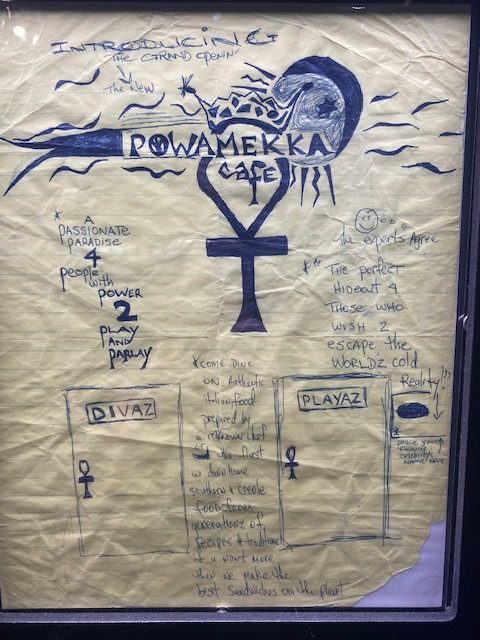 INTRODUCING
THE GRAND OPENIN
The NEW
POWAMEKKA
cafe
* A
PASSIONATE
PARADISE
4
people
with
POWER
2
PLAY
AND
PARLAY
The experts Agree
* "THE perfect
Hideout 4
Those who
wish 2
escape the
WORLDZ cold
Reality!"
* COME DINE
ON Authentic
italian food
prepared by
a reknown chef
the finest
in down home
southern & creole
food from
generationz of
recipes & traditions
if u want more
then we make the
best sandwiches on the planet
DIVAZ
PLAYAZ
*
place your
favorite
celebrity's
name here